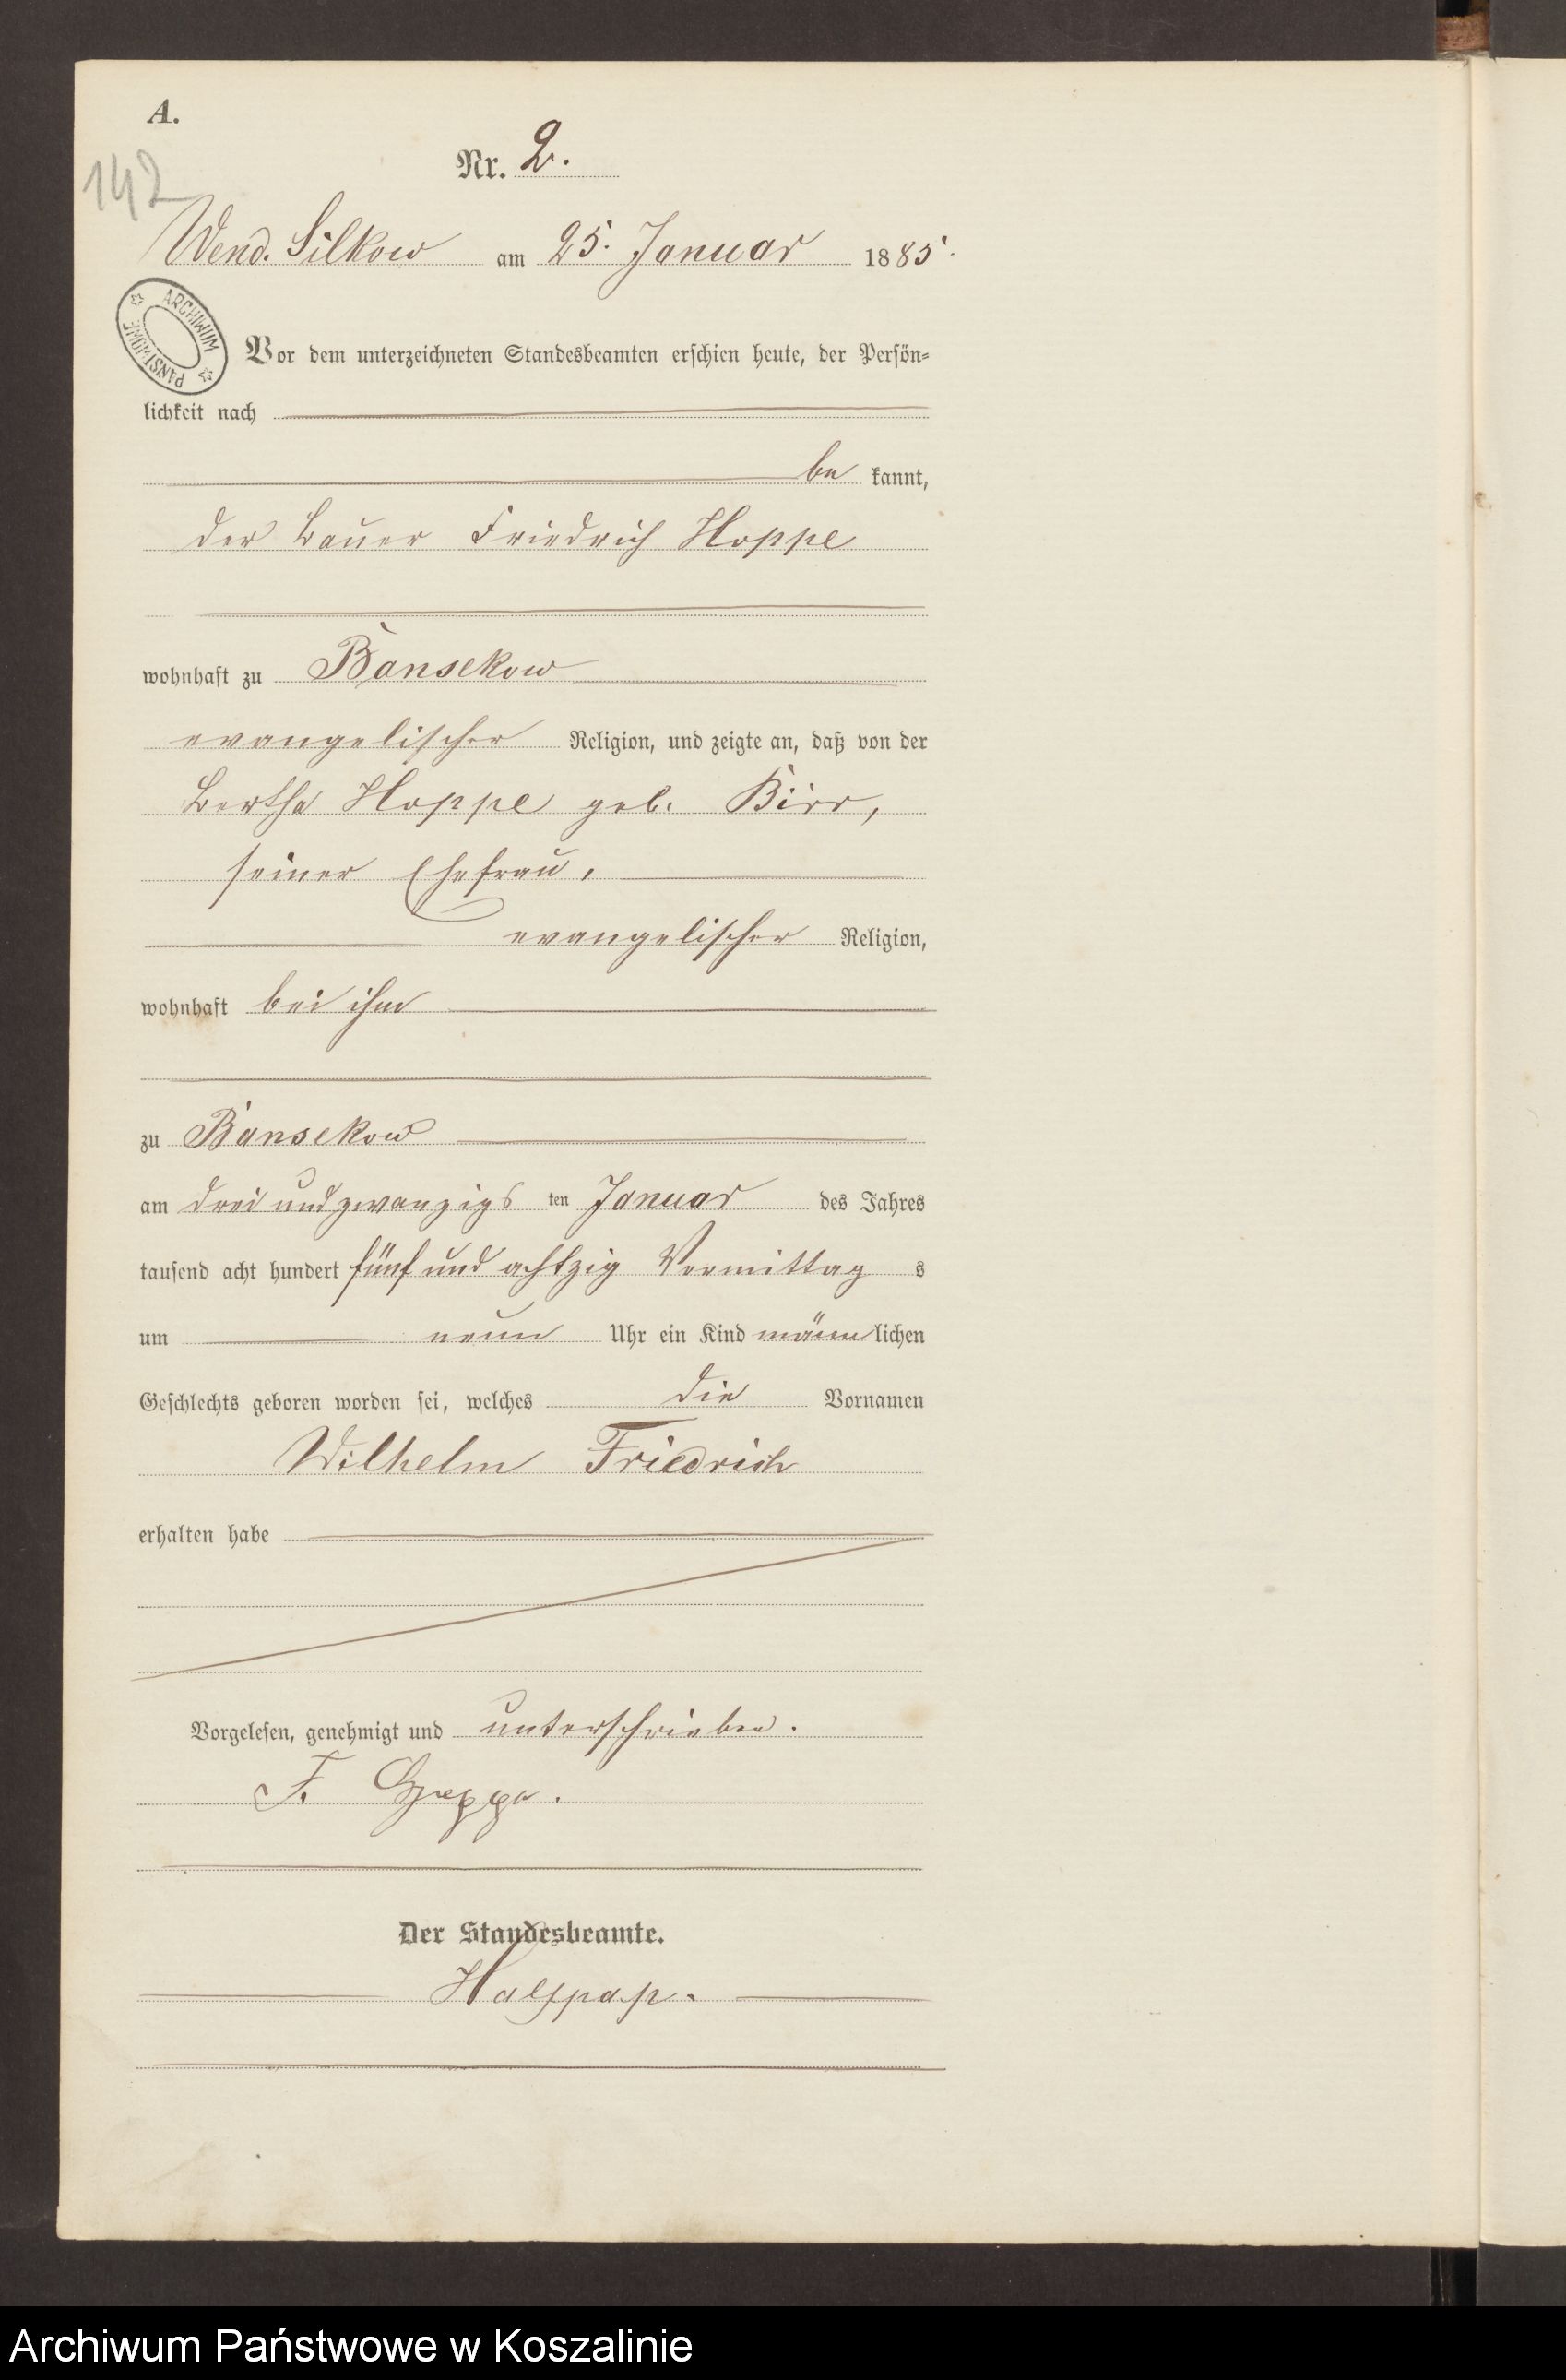 A.
142
Nr. 2.
Wend. Silkow am 25. Januar 1885.
ARCHIWUM PAŃSTWOWE
Vor dem unterzeichneten Standesbeamten erschien heute, der Persön-
lichkeit nach
be kannt,
der Bauer Friedrich Hoppe
wohnhaft zu Bansekow
evangelischer Religion, und zeigte an, daß von der
Bertha Hoppe geb. Birr,
seiner Ehefrau,
evangelischer Religion,
wohnhaft bei ihm
zu Bansekow
am drei und zwanzigs ten Januar des Jahres
tausend acht hundert fünf und achtzig Vormittag s
um neun Uhr ein Kind männ lichen
Geschlechts geboren worden sei, welches die Vornamen
Wilhelm Friedrich
erhalten habe
Vorgelesen, genehmigt und unterschrieben.
F. Hoppe.
Der Standesbeamte.
Halfpap.
Archiwum Państwowe w Koszalinie